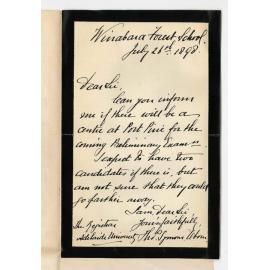 Wirrabara Forest School.
July 21st. 1898.
Dear Sir,
Can you inform
me if there will be a
centre at Port Pirie for the
coming Preliminary Exam —
I expect to have two
candidates if there is, but
am not sure that they could
go farther away.
I am Dear Sir
Yours faithfully
The Registrar
Adelaide University
Thos.